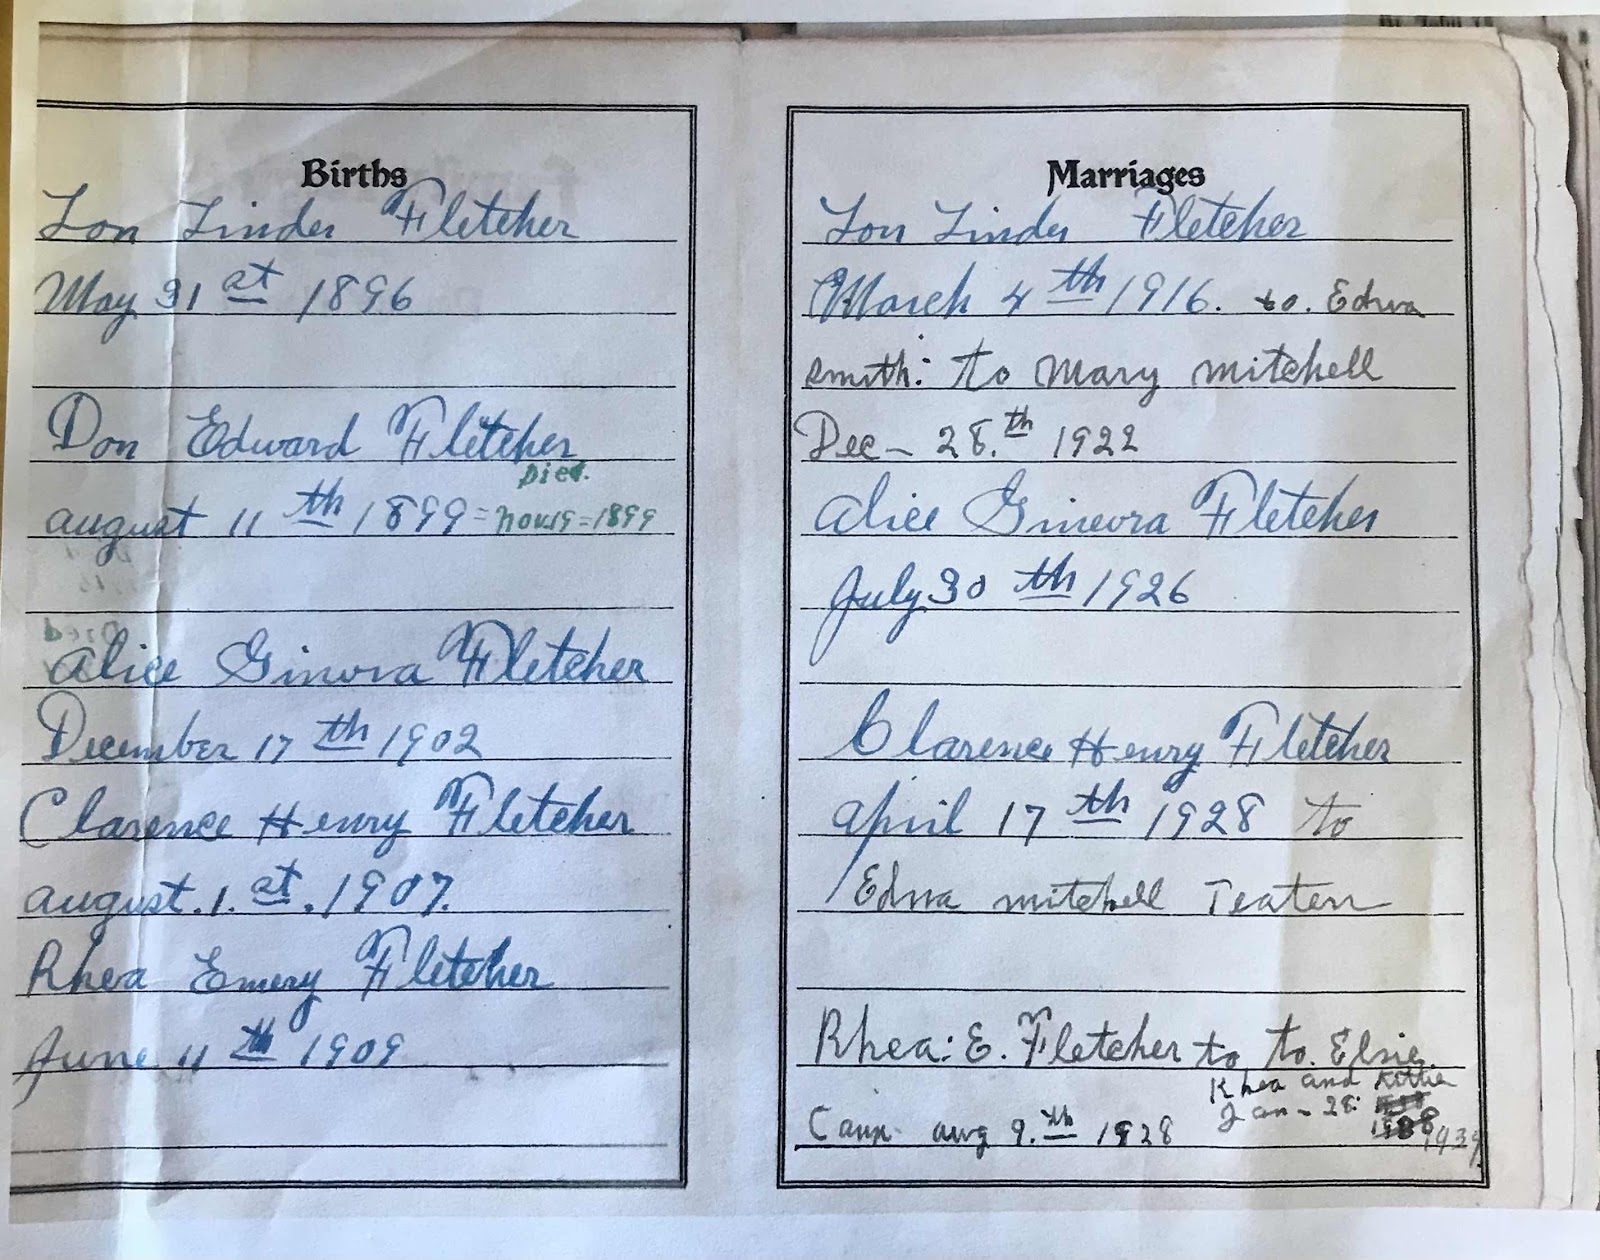 Births
Lon Linder Fletcher
May 31 st 1896
Don Edward Fletcher
Died.
august 11 th 1899 = nov.19 = 1899
Alice Ginevra Fletcher
December 17 th 1902
Clarence Henry Fletcher
august. 1. st. 1907.
Rhea Emery Fletcher
June 11 th 1909
Marriages
Lon Linder Fletcher
March 4 th 1916. to. Edna
Smith: to Mary mitchell
Dec - 28. th 1922
Alice Ginevra Fletcher
July 30 th 1926
Clarence Henry Fletcher
April 17 th 1928 to
Edna mitchell Teaten
Rhea: E. Fletcher to to. Elsie
Rhea and Kittie
Jan - 28:
aug 9. th 1928
1939